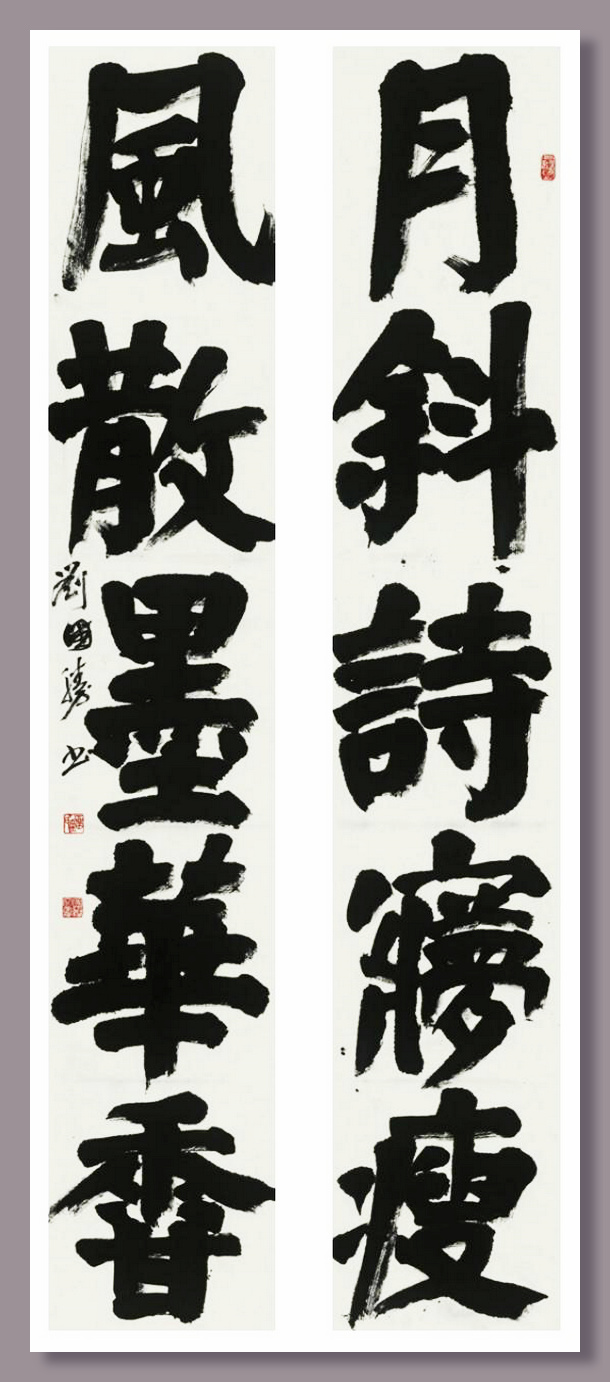 月斜詩㝱瘦
風散墨華香
劉國勝书